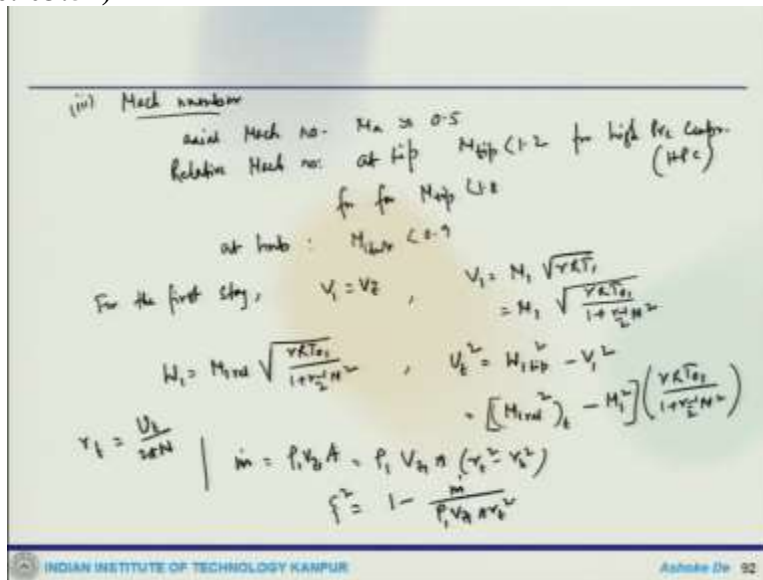 (iii) Mach number
axial Mach no. Ma ≈ 0.5
Relative Mach no: at tip Mtip < 1.2 for high Prs Compr. (HPC)
for fan Mtip < 1.8
at hub: M1hub < 0.9
For the first stage, V₁ = Vz , V₁ = M₁ √(γRT₁)
= M₁ √(γRT₀₁ / (1 + (γ-1)/2 M²))
W₁ = M1rel √(γRT₀₁ / (1 + (γ-1)/2 M²)) , Ut² = W1tip² - V₁²
= [(M1rel²)t - M₁²] (γRT₀₁ / (1 + (γ-1)/2 M²))
rt = Ut / 2πN | ṁ = ρ₁ Vz A = ρ₁ Vz π (rt² - rh²)
ξ² = 1 - ṁ / (ρ₁ Vz π rt²)
INDIAN INSTITUTE OF TECHNOLOGY KANPUR
Ashoke De 92